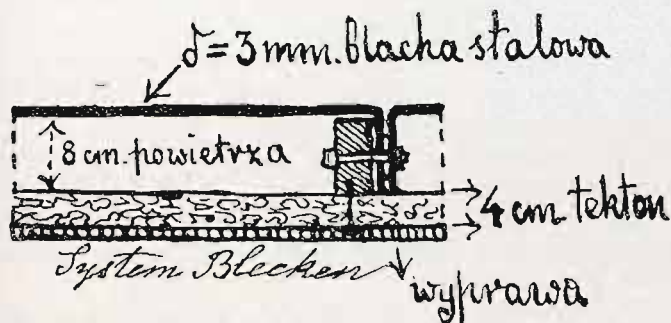 δ = 3 mm. blacha stalowa
8 cm. powietrza
4 cm tekton
System Blecken
wyprawa